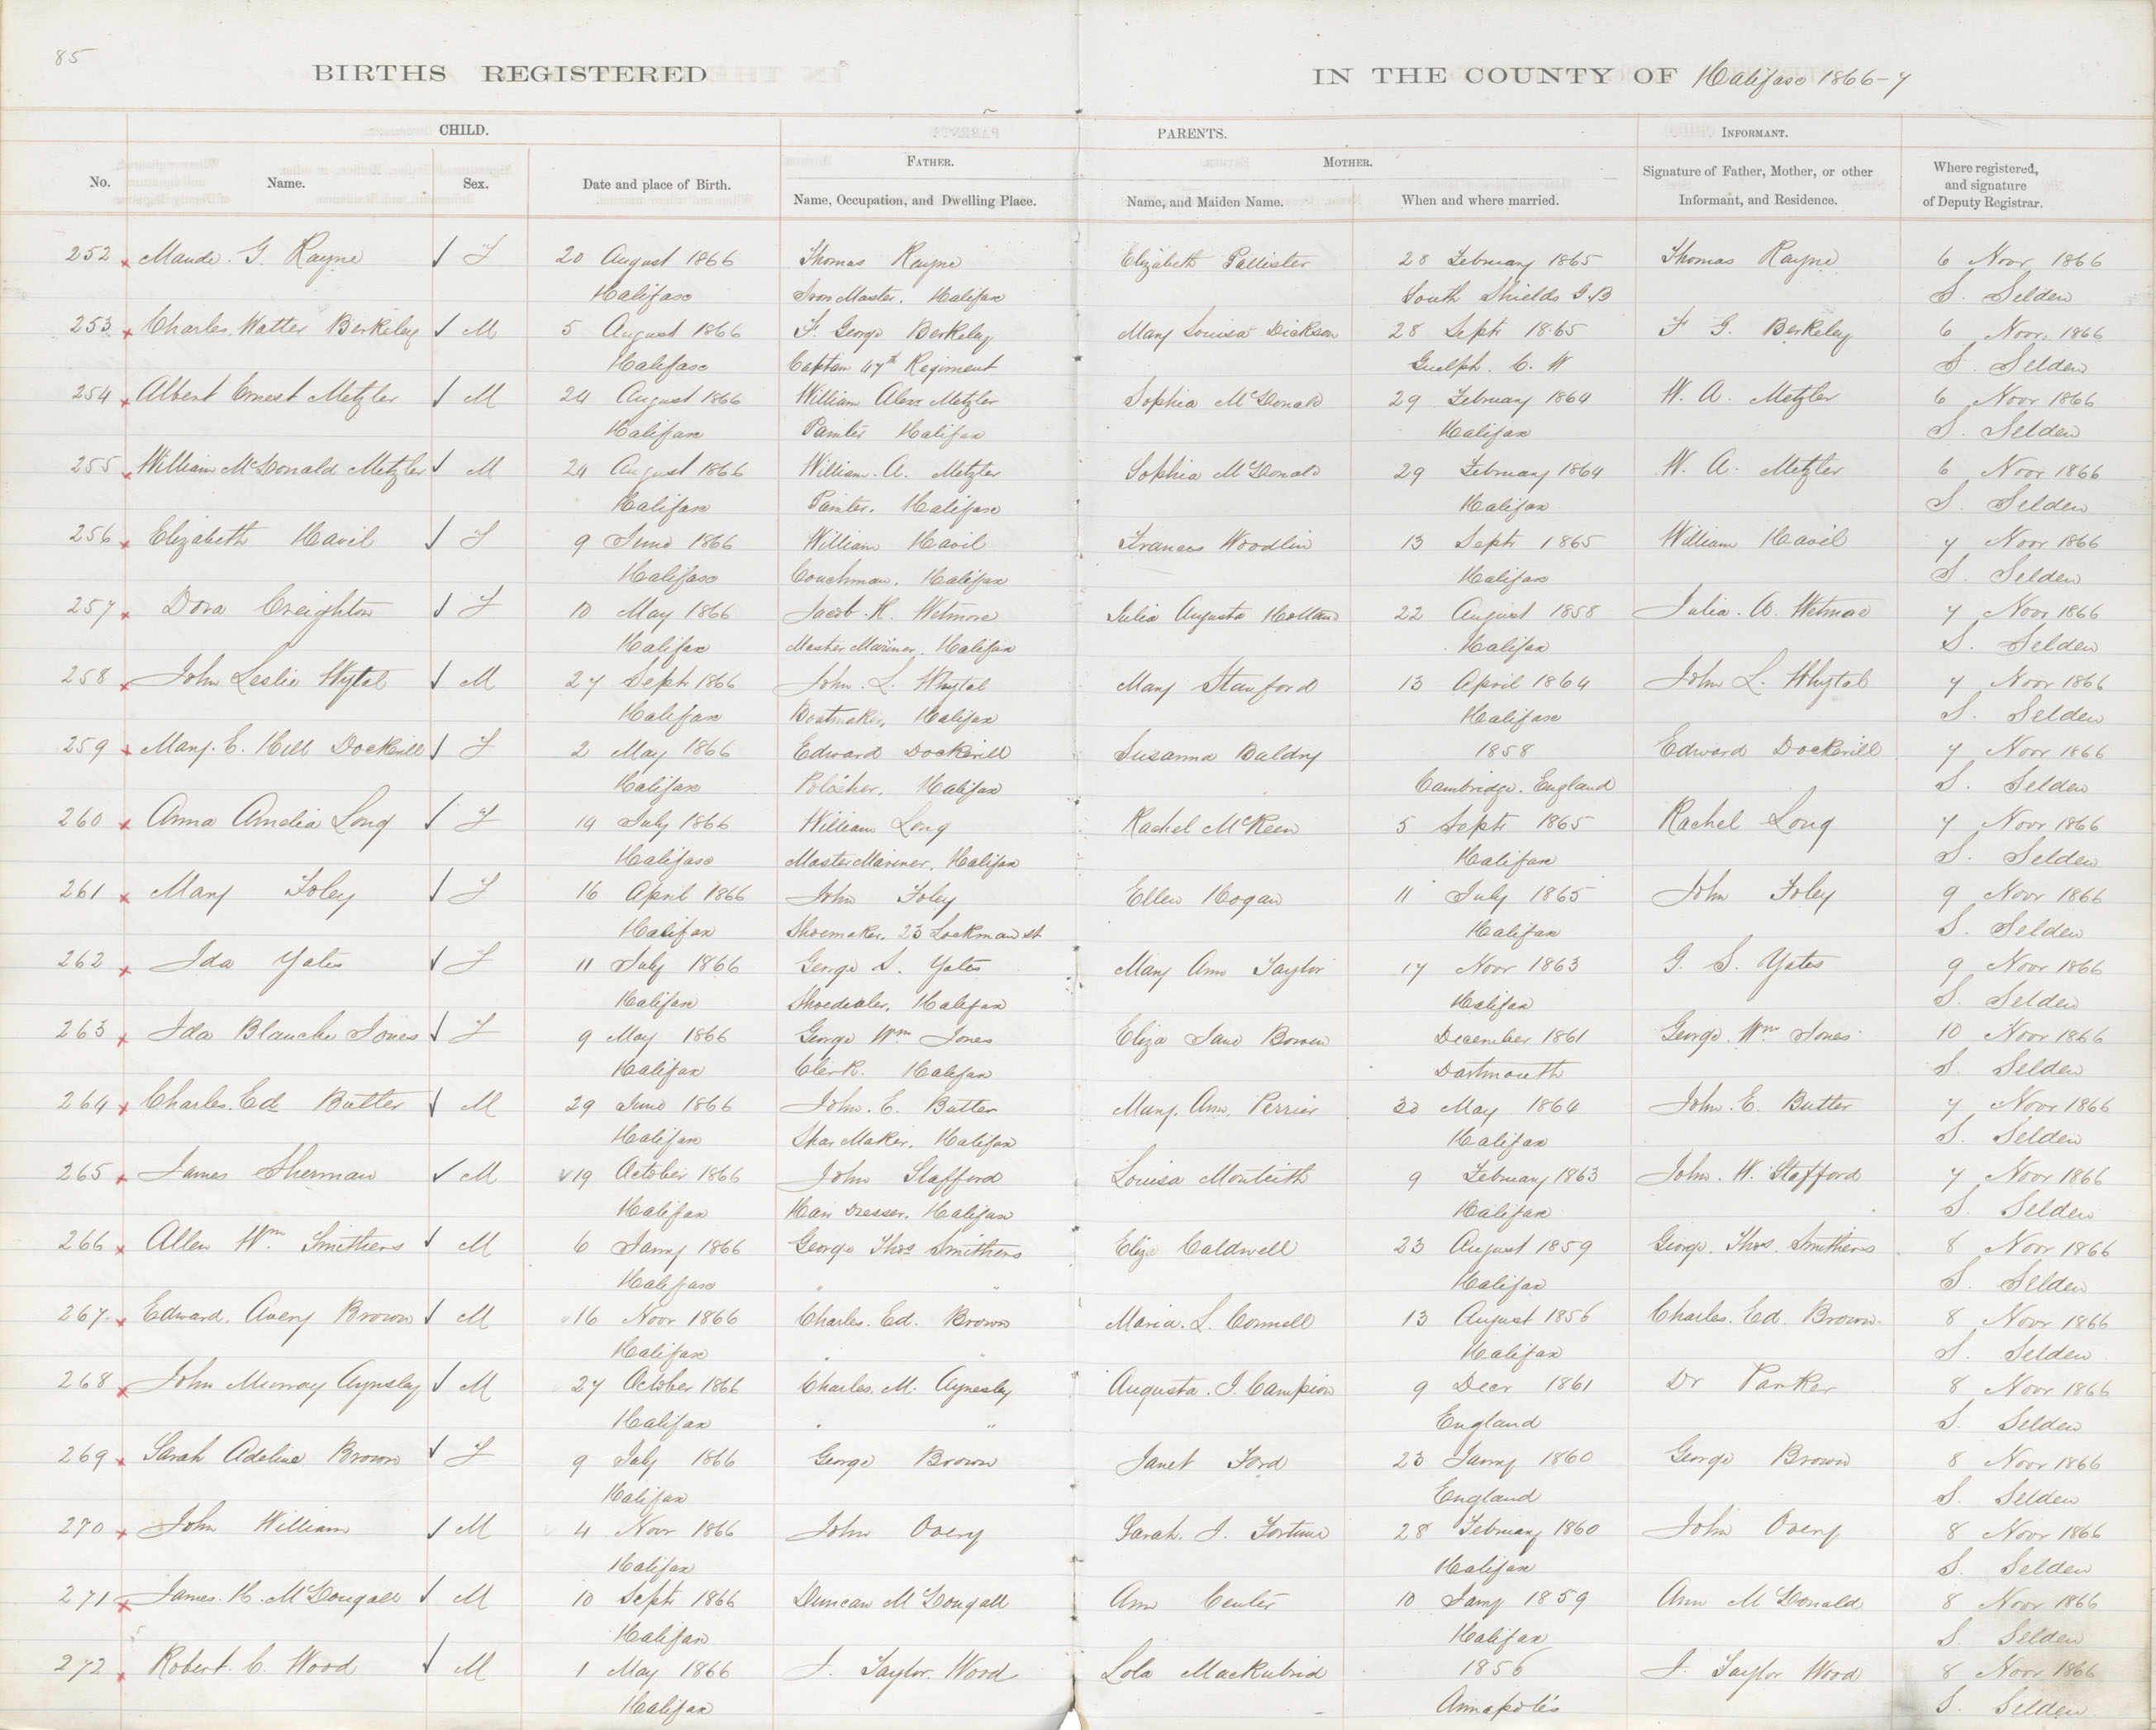 85
BIRTHS REGISTERED IN THE COUNTY OF Halifax 1866-7
CHILD. PARENTS. INFORMANT.
FATHER. MOTHER.
No. Name. Sex. Date and place of Birth. Name, Occupation, and Dwelling Place. Name, and Maiden Name. When and where married. Signature of Father, Mother, or other Informant, and Residence. Where registered, and signature of Deputy Registrar.
252 Maude. G. Rayne F 20 August 1866 Thomas Rayne Elizabeth Pallister 28 February 1865 Thomas Rayne 6 Novr 1866
Halifax Iron Master. Halifax South Shields G.B S. Selden
253 Charles Walter Berkeley M 5 August 1866 F. George Berkeley Mary Louisa Dickson 28 Septr 1865 F G. Berkeley 6 Novr 1866
Halifax Captain 47th Regiment Guelph. C. W S. Selden
254 Albert Ernest Metzler M 24 August 1866 William Alexr Metzler Sophia McDonald 29 February 1864 W. A. Metzler 6 Novr 1866
Halifax Painter Halifax Halifax S. Selden
255 William McDonald Metzler M 24 August 1866 William. A. Metzler Sophia McDonald 29 February 1864 W. A. Metzler 6 Novr 1866
Halifax Painter. Halifax Halifax S. Selden
256 Elizabeth Havil F 9 June 1866 William Havil Frances Woodlin 13 Septr 1865 William Havil 7 Novr 1866
Halifax Coachman. Halifax Halifax S. Selden
257 Dora Creighton F 10 May 1866 Jacob. H. Wetmore Julia Augusta Holland 22 August 1858 Julia. A. Wetmore 7 Novr 1866
Halifax Master Mariner. Halifax Halifax S. Selden
258 John Leslie Wytal M 27 Septr 1866 John. L. Whytal Mary Stanford 13 April 1864 John L. Whytal 7 Novr 1866
Halifax Bootmaker, Halifax Halifax S. Selden
259 Mary. E. Hill Dockerill F 2 May 1866 Edward Dockerill Susanna Baldry 1858 Edward Dockerill 7 Novr 1866
Halifax Polisher. Halifax Cambridge. England S. Selden
260 Anna Amelia Long F 14 July 1866 William Long Rachel McKeen 5 Septr 1865 Rachel Long 7 Novr 1866
Halifax Master Mariner. Halifax Halifax S. Selden
261 Mary Foley F 16 April 1866 John Foley Ellen Hogan 11 July 1865 John Foley 9 Novr 1866
Halifax Shoemaker. 23 Lockman St Halifax S. Selden
262 Ida Yates F 11 July 1866 George S. Yates Mary Ann Taylor 17 Novr 1863 G. S. Yates 9 Novr 1866
Halifax Shoedealer. Halifax Halifax S. Selden
263 Ida Blanche Jones F 9 May 1866 George Wm Jones Eliza Jane Bowen December 1861 George. Wm Jones 10 Novr 1866
Halifax Clerk. Halifax Dartmouth S. Selden
264 Charles. Ed. Butter M 29 June 1866 John. E. Butter Mary. Ann. Perrier 30 May 1864 John. E. Butter 7 Novr 1866
Halifax Maker. Halifax Halifax S. Selden
265 James Sherman M 19 October 1866 John Stafford Louisa Monteith 9 February 1863 John. W. Stafford 7 Novr 1866
Halifax Hair Dresser. Halifax Halifax S. Selden
266 Allen Wm. Smithers M 6 Jany 1866 George Thos Smithers Eliza Caldwell 23 August 1859 George. Thos. Smithers 8 Novr 1866
Halifax " " Halifax S. Selden
267 Edward. Avery Brown M 16 Novr 1866 Charles. Ed. Brown Maria. L. Connell 13 August 1856 Charles. Ed. Brown 8 Novr 1866
Halifax " " Halifax S. Selden
268 John Murray Aynsley M 27 October 1866 Charles. M. Aynesley Augusta. J. Campion 9 Decr 1861 Dr Parker 8 Novr 1866
Halifax " " England S. Selden
269 Sarah Adeline Brown F 9 July 1866 George Brown Janet Ford 23 Jany 1860 George Brown 8 Novr 1866
Halifax England S. Selden
270 John William M 4 Novr 1866 John Overy Sarah. J. Fortune 28 February 1860 John Overy 8 Novr 1866
Halifax Halifax S. Selden
271 James. H. McDougall M 10 Septr 1866 Duncan McDougall Ann Center 10 Jany 1859 Ann McDonald 8 Novr 1866
Halifax Halifax S. Selden
272 Robert. C. Wood M 1 May 1866 J. Taylor. Wood Lola Mackubrid 1856 J. Taylor Wood 8 Novr 1866
Halifax Annapolis S. Selden